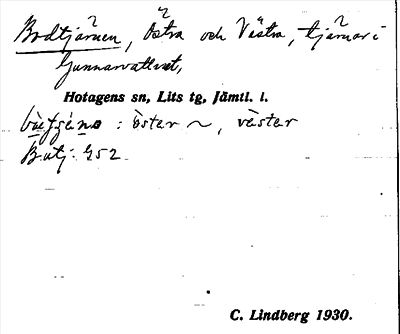 Bodtjärnen, Östra och Västra, tjärnar i
Gunnarvattnet,
Hotagens sn, Lits tg, Jämtl. l.
: öster ~, väster
C. Lindberg 1930.